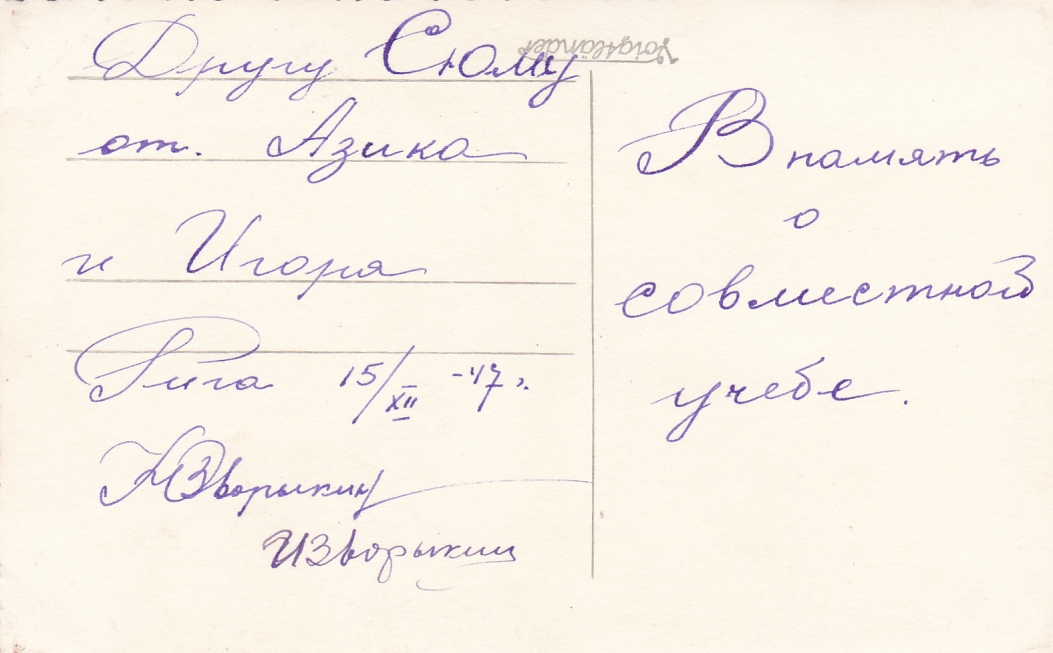 Другу Сюму
от. Азика
и Игоря
Рига 15/XII -47 г.
Зворыкин
ИЗворыкин
В память
о
совместной
учебе.
Voigtländer